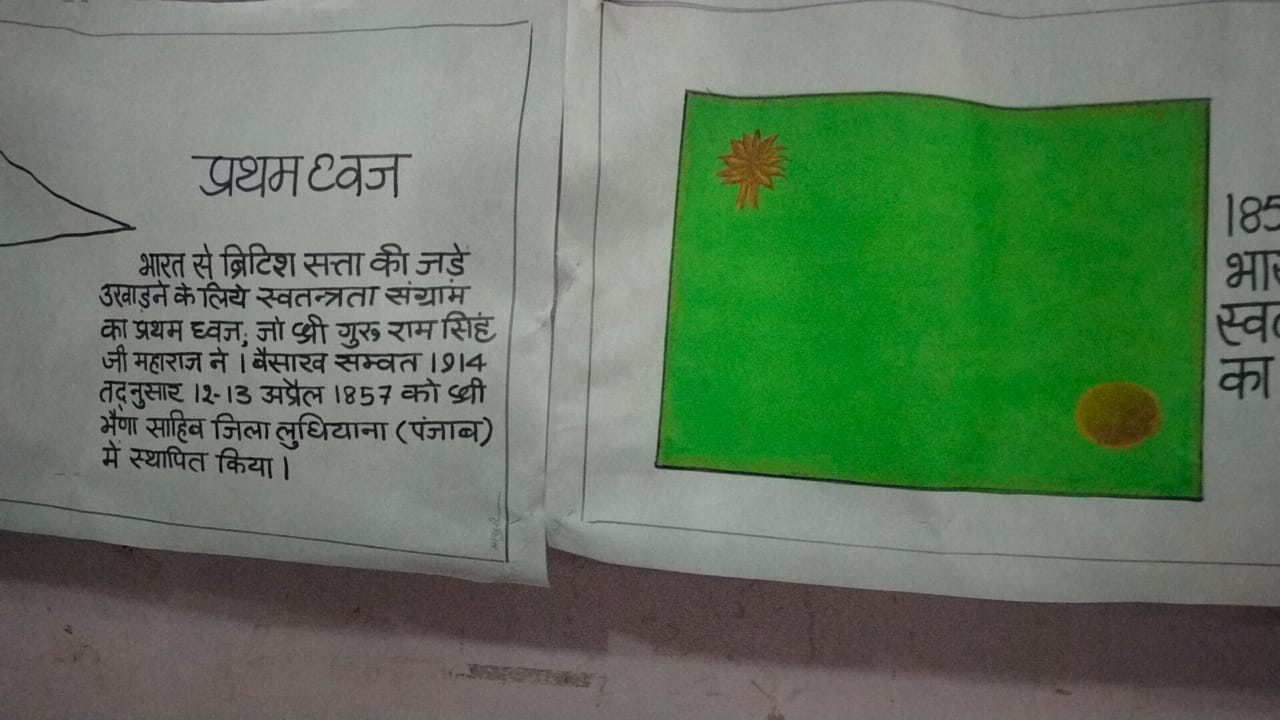 प्रथम ध्वज
भारत से ब्रिटिश सत्ता की जड़े
उखाड़ने के लिये स्वतन्त्रता संग्राम
का प्रथम ध्वज, जो श्री गुरू राम सिहं
जी महाराज ने 1 बैसाख सम्वत 1914
तद्नुसार 12-13 अप्रैल 1857 को श्री
भैणा साहिब जिला लुधियाना (पंजाब)
में स्थापित किया।
185
भार
स्वत
का